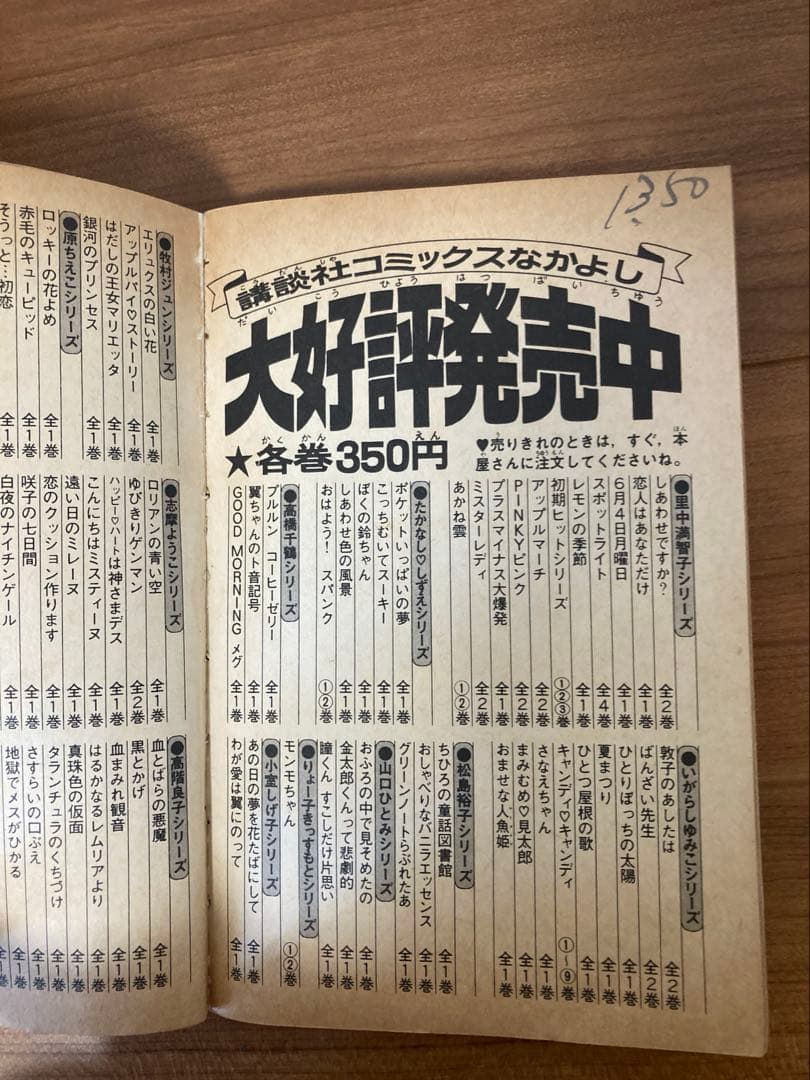 1350
講談社コミックスなかよし
大好評発売中
★各巻350円
♥売りきれのときは，すぐ，本
屋さんに注文してくださいね。
●里中満智子シリーズ
しあわせですか？ 全2巻
恋人はあなただけ 全1巻
6月4日月曜日 全1巻
スポットライト 全4巻
レモンの季節 全1巻
初期ヒットシリーズ ①②③巻
アップルマーチ 全2巻
PINKYピンク 全2巻
プラスマイナス大爆発 全1巻
ミスターレディ 全2巻
あかね雲 ①②巻
●たかなし♡しずえシリーズ
ポケットいっぱいの夢 全1巻
こっちむいてスーキー 全1巻
ぼくの鈴ちゃん 全1巻
しあわせ色の風景 全1巻
おはよう！ スパンク ①②巻
●高橋千鶴シリーズ
プルルン コーヒーゼリー 全1巻
翼ちゃんのト音記号 全1巻
GOOD MORNING メグ 全1巻
●いがらしゆみこシリーズ
敦子のあしたは 全2巻
ばんざい先生 全2巻
ひとりぼっちの太陽 全1巻
夏まつり 全1巻
ひとつ屋根の歌 全1巻
キャンディ♡キャンディ ①〜⑨巻
さなえちゃん 全1巻
まみむめ♡見太郎 全1巻
おませな人魚姫 全1巻
●松島裕子シリーズ
ちひろの童話図書館 全1巻
おしゃべりなバニラエッセンス 全1巻
グリーンノートらぶれたあ 全1巻
●山口ひとみシリーズ
おふろの中で見そめたの 全1巻
金太郎くんって悲劇的 全1巻
瞳くん すこしだけ片思い 全1巻
●りょー子きっすもとシリーズ
モンモちゃん ①②巻
●小室しげ子シリーズ
あの日の夢を花たばにして 全1巻
わが愛は翼にのって 全1巻
●牧村ジュンシリーズ
エリュクスの白い花 全1巻
アップルパイ♡ストーリー 全1巻
はだしの王女マリエッタ 全1巻
銀河のプリンセス 全1巻
●原ちえこシリーズ
ロッキーの花よめ 全1巻
赤毛のキューピッド 全1巻
そうっと…初恋 全1巻
●志摩ようこシリーズ
ロリアンの青い空 全1巻
ゆびきりゲンマン 全2巻
ハッピー♡ハートは神さまデス 全1巻
こんにちはミスティーヌ 全1巻
遠い日のミレーヌ 全1巻
恋のクッション作ります 全1巻
咲子の七日間 全1巻
白夜のナイチンゲール 全1巻
●高階良子シリーズ
血とばらの悪魔 全1巻
黒とかげ 全1巻
血まみれ観音 全1巻
はるかなるレムリアより 全1巻
真珠色の仮面 全1巻
タランチュラのくちづけ 全1巻
さすらいの口ぶえ 全1巻
地獄でメスがひかる 全1巻